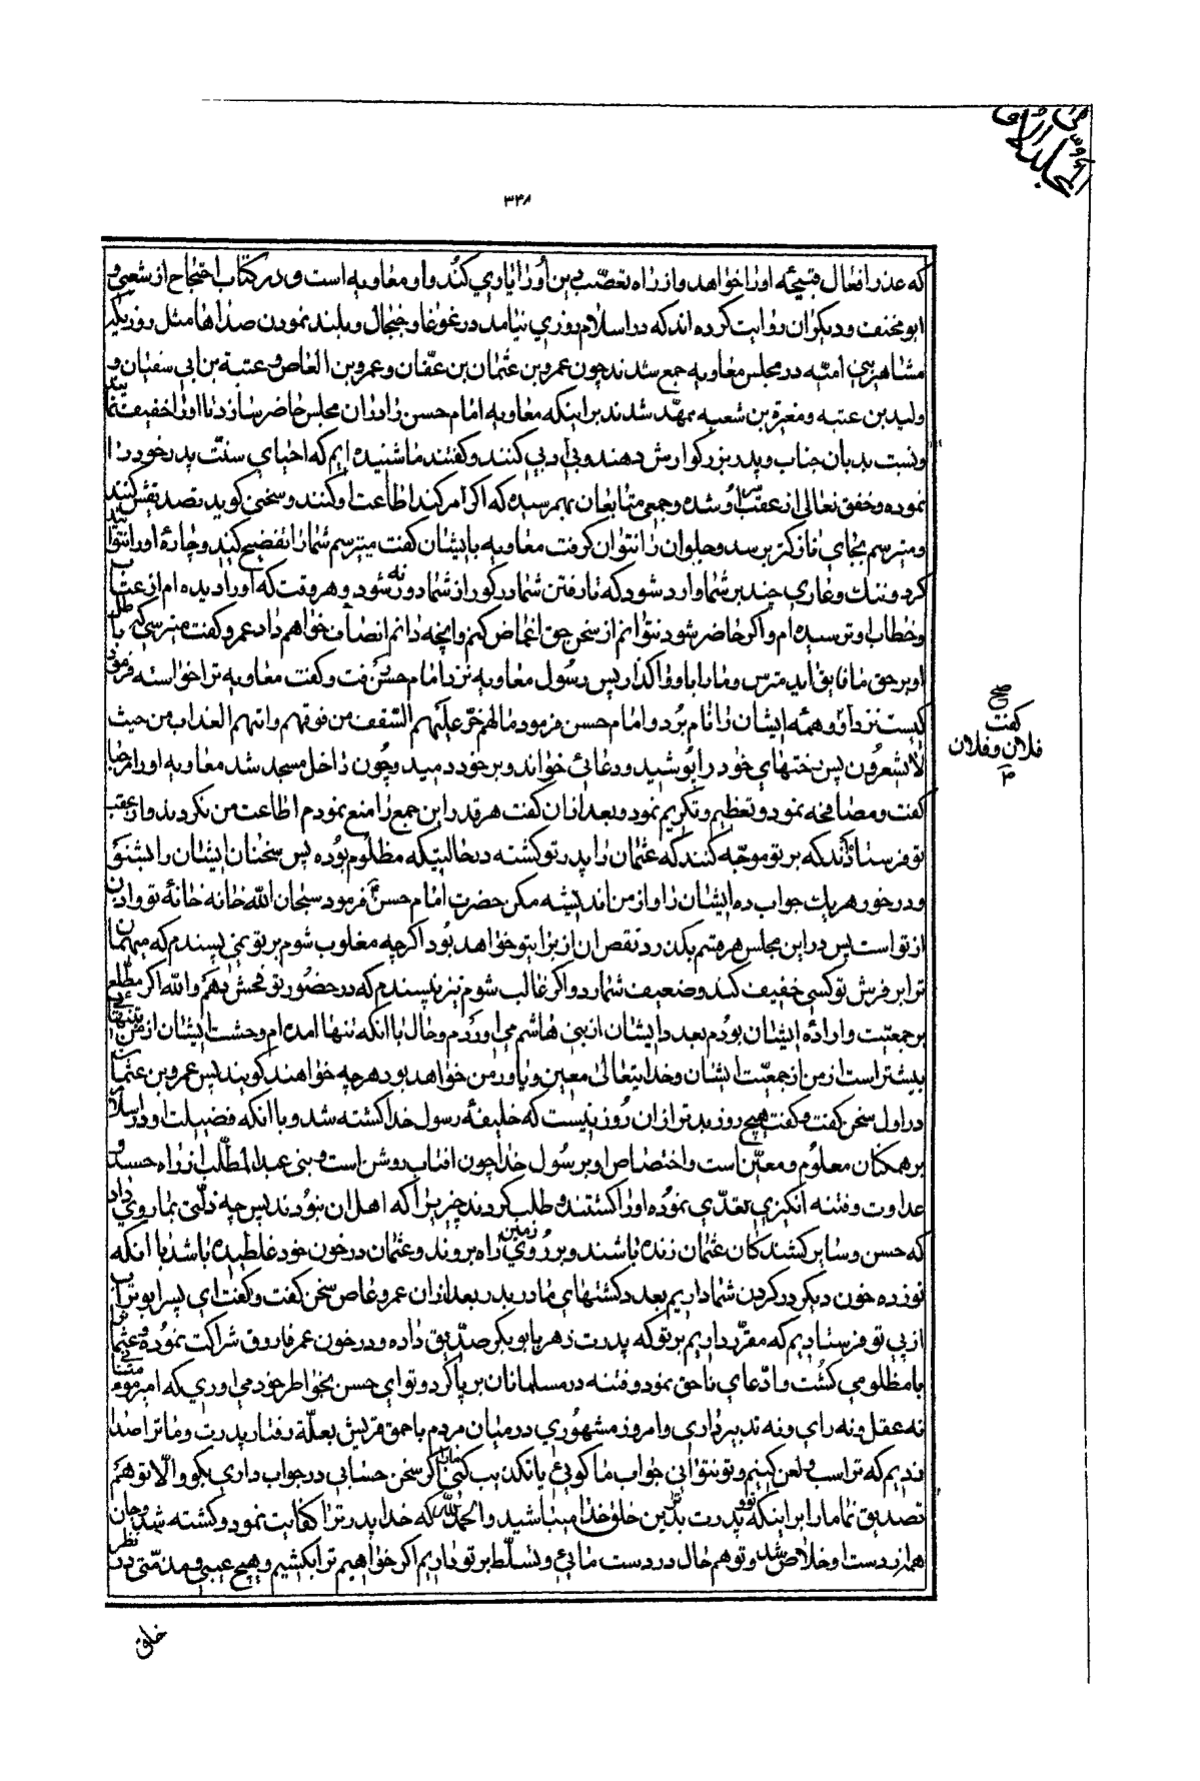 المجلد الاول
۳۴۸
که عذر افعال قبیحهٔ او را خواهد و از راه تعصب دین او را یاری کند و او معاویه است و در کتاب احتجاج از شعبی و
ابو مخنف و دیگران روایت کرده اند که در اسلام روزی نیامد در غوغا و جنجال و بلند نمودن صداها مثل روزیکه
مشاهیر بنی امیّه در مجلس معاویه جمع شدند چون عمرو بن عثمان بن عفّان و عمرو بن العاص و عتبة بن ابی سفیان و
ولید بن عتبه و مغیرة بن شعبه مهّد شدند بر اینکه معاویه امام حسن را در آن مجلس حاضر سازد تا او را خفیف نمایند
و نسبت بد بان جناب و پدر بزرگوارش دهند و بی ادبی کنند و گفتند ما شنیده ایم که احیای سنّت پدر خود را
نموده و خفق نعال از عقب او شده و جمعی متابعان بهمرسیده که اگر امر کند اطاعت او کنند و سخنی گوید تصدیقش کنند
و میترسم بجای نازکتر برسد و جلو آن را نتوان گرفت معاویه بایشان گفت میترسم شما را تفضیح کند و چارهٔ او را نتوانید
کرد و ننک و عاری چند بر شما وارد شود که تا رفتن شما در گور از شما دور نشود و هر وقت که او را دیده ام از عتاب
و خطاب او ترسیده ام و اگر حاضر شود نتوانم از سخن حق اغماض کنم و آنچه دانم انصاف خواهم داد عمرو گفت میترسی که باطل
او بر حق ما فایق آید مترس و ما را با او واگذار پس رسول معاویه نزد امام حسن رفت و گفت معاویه ترا خواسته فرمود
کیست نزد او و همه ایشان را نام برد و امام حسن فرمود ما لهم خرّ علیهم السّقف من فوقهم و اتیهم العذاب من حیث
لا یشعرون پس رختهای خود را پوشید و دعائی خواند و بر خود دمید و چون داخل مسجد شد معاویه او را مرحبا
گفت و مصافحه نمود و تعظیم و تکریم نمود و بعد از آن گفت هر قدر این جمع را منع نمودم اطاعت من نکردند و از عقب
تو فرستادند که بر تو موجّه کنند که عثمان را پدر تو کشته در حالتیکه مظلوم بوده پس سخنان ایشان را بشنو
و در خور هر یک جواب ده ایشان را و از من اندیشه مکن حضرت امام حسن فرمود سبحان الله خانه خانهٔ تو و اذن
از تو است پس در این مجلس هر قسم بگذرد نقص آن از برای تو خواهد بود اگر چه مغلوب شوم بر تو نمی پسندم که میهمان
ترا بر فرش تو کسی خفیف کند و ضعیف شمارد و اگر غالب شوم نیز نپسندم که در حضور تو فحش دهم و الله اگر مطّلع
بر جمعیت و ارادهٔ ایشان بودم بعدد ایشان از بنی هاشم می اوردم و حال با آنکه تنها امده ام وحشت ایشان از من تنهائی
بیشتر است از من از جمعیّت ایشان و خدایتعالی معین و یاور من خواهد بود هر چه خواهند گویند پس عمرو بن عثمان
در اول سخن گفت و گفت هیچ روز بدتر از ان روز نیست که خلیفهٔ رسول خدا کشته شد و با انکه فضیلت او در اسلام
بر همگان معلوم و معیّن است و اختصاص او برسول خدا چون افتاب روشن است و بنی عبد المطّلب از راه حسد و
عداوت و فتنه انگیزی تعدّی نموده او را کشتند و طلب کردند چیزیرا که اهل ان نبودند پس چه ذلّتی بما روی داد
که حسن و سایر کشندگان عثمان زنده باشند و بر روی زمین راه بروند و عثمان در خون خود غلطیده باشد با آنکه
نوزده خون دیگر در گردن شما داریم بعدد کشتهای ما در بدر بعد از آن عمرو عاص سخن گفت و گفت ای پسر ابو تراب
از پی تو فرستادیم که مقرّر داریم بر تو که پدرت زهر بابو بکر صدّیق داده و در خون عمر فاروق شراکت نموده و عثمان را
بامظلومی کشت و ادّعای ناحق نمود و فتنه در مسلمانان بر پا کرد و تو ای حسن بخواطر خود می اوری که امیر مومنانی
نه عقل و نه رای و نه تدبیر داری و امروز مشهوری در میان مردم باحمق قریش بعلّة رفتار پدرت و ما ترا صدا
زدیم که ترا سبّ و لعن کنیم و تو نتوانی جواب ما گوئی یا تکذیب کنی ما را اگر سخن حسابی در جواب داری بگو و الّا تو هم
تصدیق نما ما را بر اینکه تو و پدرت بدترین خلق خدا میباشید و الحمد لله که خدا پدر ترا کفایت نمود و کشته شد و جان
همه از دست او خلاص شد و تو هم حال در دست مائی و تسلّط بر تو داریم اگر خواهیم ترا بکشیم و هیچ عیبی و مذمّتی در نظر
صح
گفت
فلان و فلان
خلق